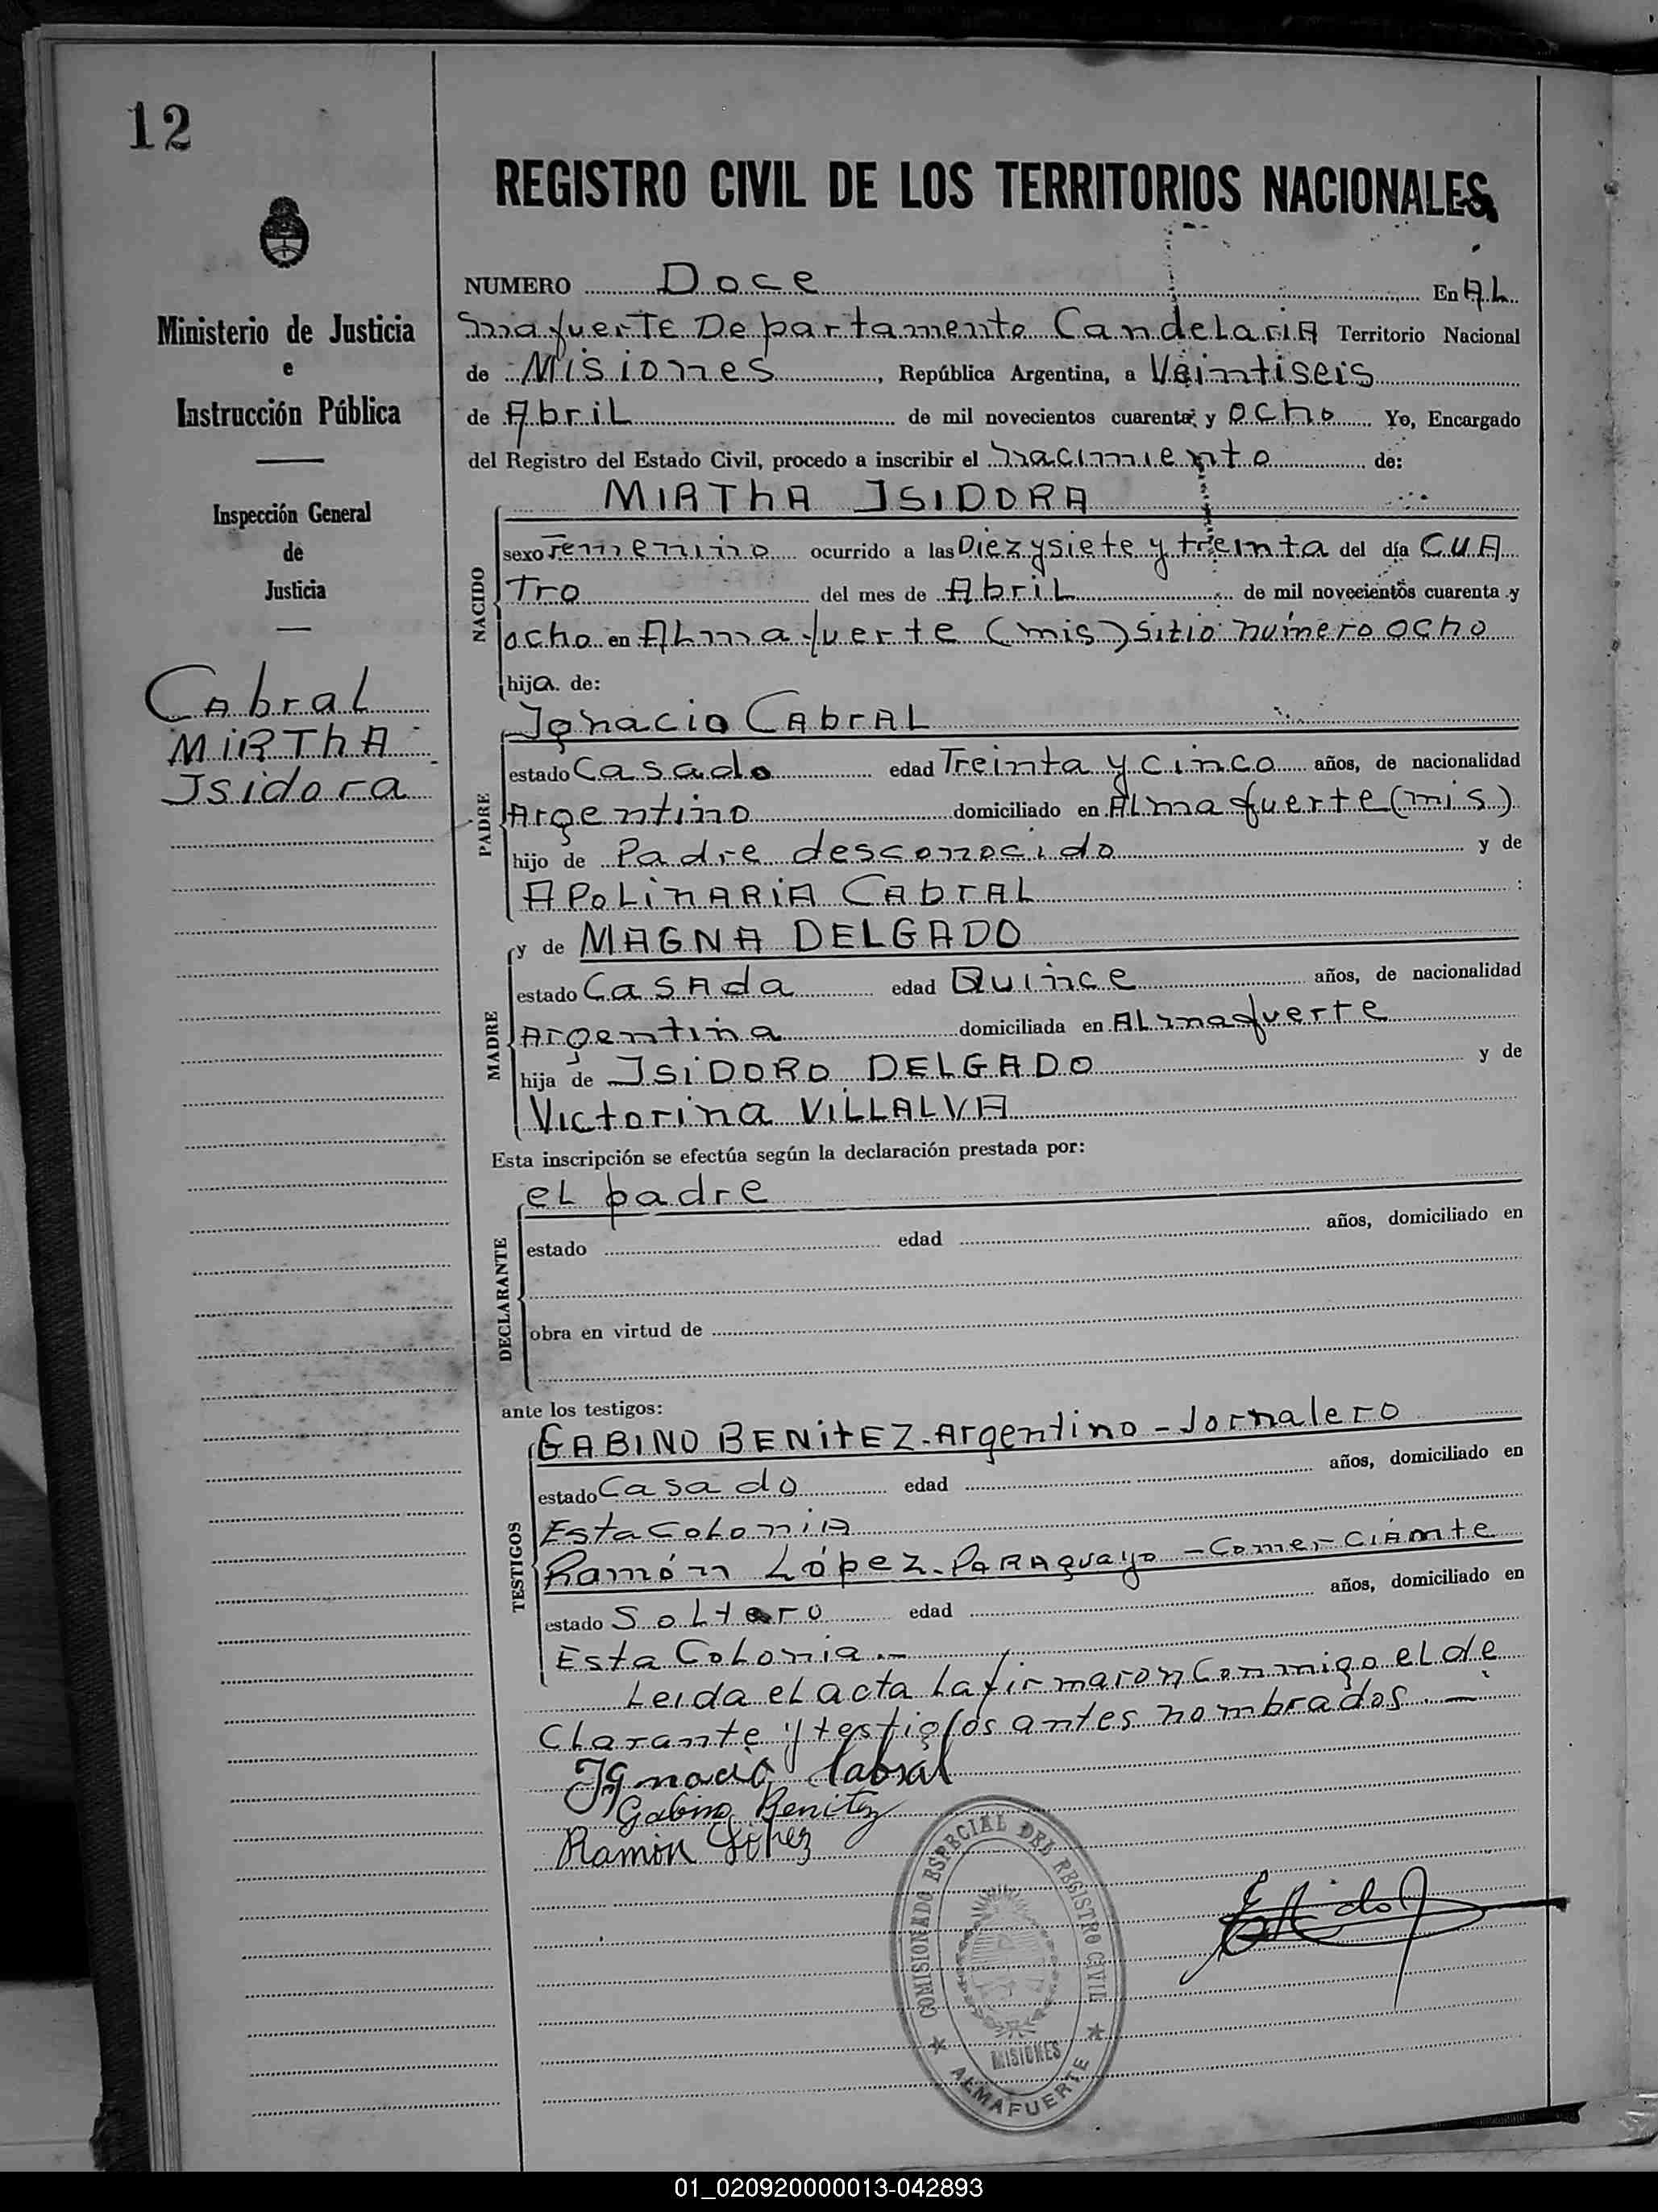 12
REGISTRO CIVIL DE LOS TERRITORIOS NACIONALES
Ministerio de Justicia
e
Instrucción Pública
Inspección General
de
Justicia
Cabral
MIRThA
Isidora
NUMERO Doce En AL
mafuerTE Departamento CandelariA Territorio Nacional
de Misiones, República Argentina, a Veintiseis
de Abril de mil novecientos cuarenta y ocho Yo, Encargado
del Registro del Estado Civil, procedo a inscribir el nacimiento de:
MIRThA ISIDORA
NACIDO
sexo Femenino ocurrido a las Diez y siete y treinta del día CUA
Tro del mes de Abril de mil novecientos cuarenta y
ocho en ALmafuerte (mis) sitio número ocho
hija de:
Ignacio CAbrAL
PADRE
estado Casado edad Treinta y cinco años, de nacionalidad
Argentino domiciliado en ALmafuerte (mis)
hijo de Padre desconocido y de
APoLinARiA CAbrAL
y de MAGNA DELGADO
MADRE
estado CasAda edad Quince años, de nacionalidad
Argentina domiciliada en ALmafuerte
hija de ISiDORO DELGADO y de
Victorina VILLALVA
Esta inscripción se efectúa según la declaración prestada por:
eL padre
DECLARANTE
estado edad años, domiciliado en
obra en virtud de
ante los testigos:
GABINO BENiTEZ - Argentino - Jornalero
TESTIGOS
estado Casado edad años, domiciliado en
Esta CoLoniA
Ramón López - PARAguayo - Comer-CiAnte
estado SoLtero edad años, domiciliado en
Esta CoLonia.-
Leida eL acta La firmaron Conmigo eL de
CLarante y testigos antes nombrados.-
Ignacio Cabral
Gabino Benitez
Ramón López
COMISIONADO ESPECIAL DEL REGISTRO CIVIL
MISIONES
ALMAFUERTE
01_020920000013-042893